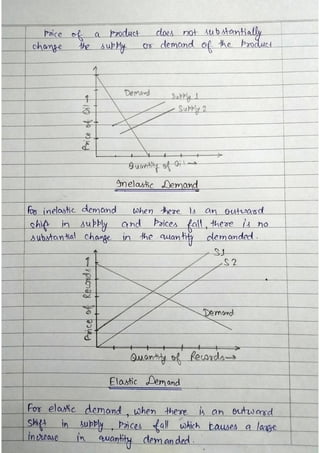 Price of a Product does not substantially
change the supply or demand of the Product
Demand
Supply 1
Supply 2
Price of Oil →
Quantity of Oil →
Inelastic Demand
For inelastic demand when there is an outward
shift in supply and Prices fall, there is no
substantial change in the quantity demanded.
S1
S2
Price of Records →
Demand
Quantity of Records →
Elastic Demand
For elastic demand, when there is an outward
Shift in supply, Prices fall which causes a large
increase in quantity demanded.